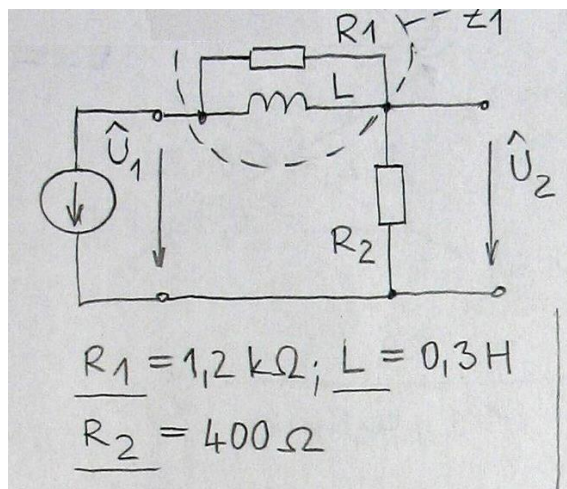 R1 Z1
L
Û1 Û2
R2
R1 = 1,2 kΩ; L = 0,3 H
R2 = 400 Ω